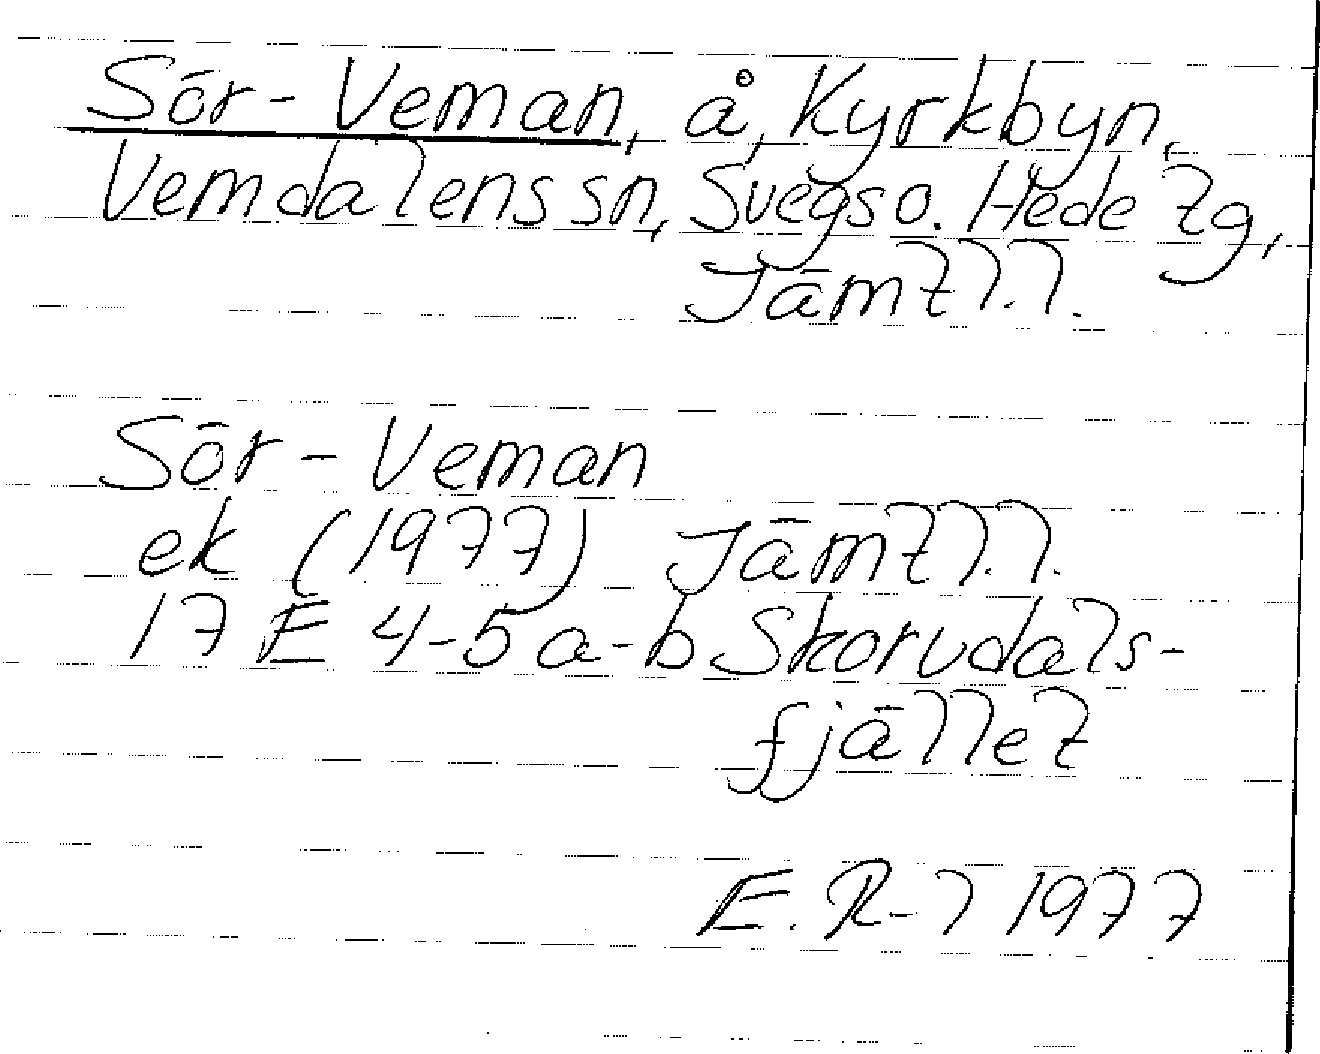 Sör-Veman, å, Kyrkbyn,
Vemdalens sn, Svegs o. Hede tg,
Jämtl.l.
Sör-Veman
ek (1977) Jämtl.l.
17 E 4-5 a-b Skorvdals-
fjället
E. R-l 1977